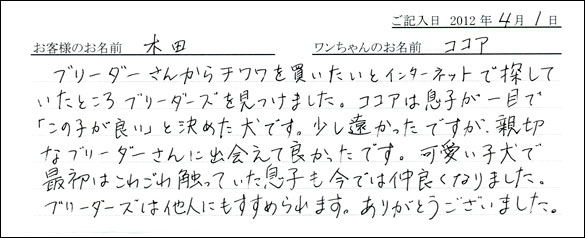 ご記入日 2012年4月1日
お客様のお名前 木田 ワンちゃんのお名前 ココア
ブリーダーさんからチワワを買いたいとインターネットで探して
いたところブリーダーズを見つけました。ココアは息子が一目で
「この子が良い」と決めた犬です。少し遠かったですが、親切
なブリーダーさんに出会えて良かったです。可愛い子犬で
最初はこわごわ触っていた息子も今では仲良くなりました。
ブリーダーズは他人にもすすめられます。ありがとうございました。